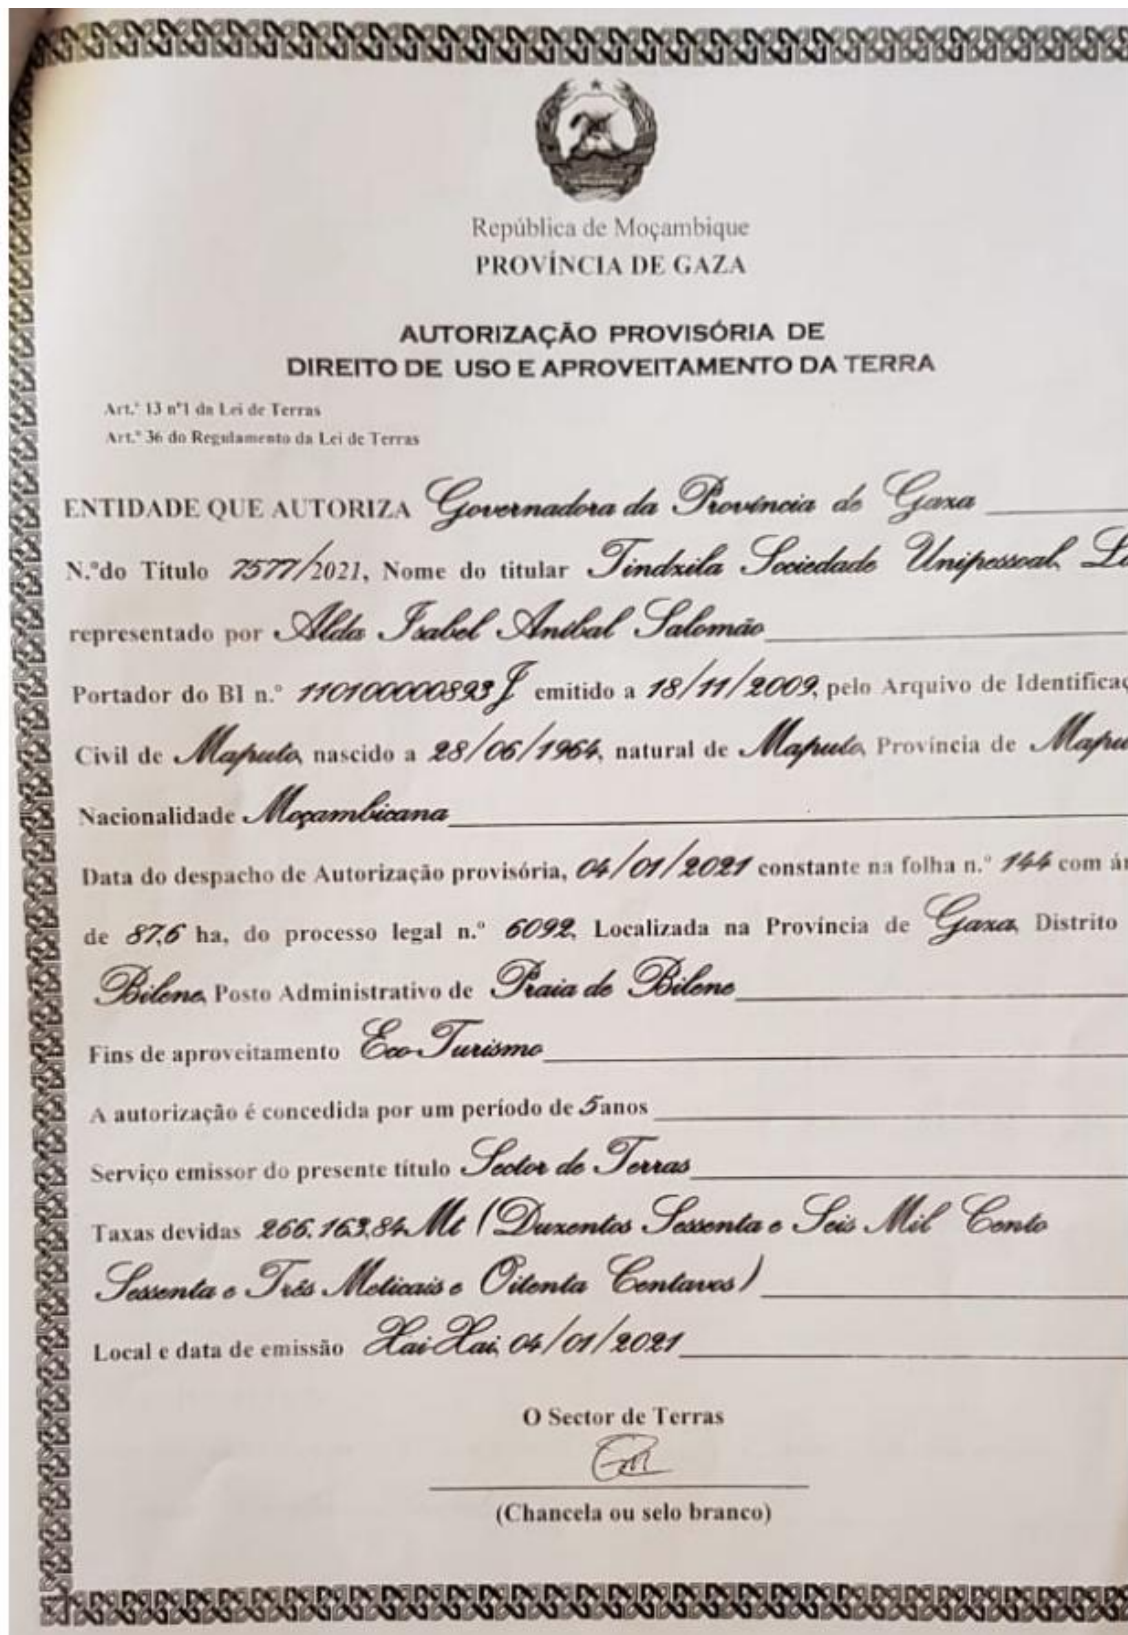 República de Moçambique
PROVÍNCIA DE GAZA
AUTORIZAÇÃO PROVISÓRIA DE
DIREITO DE USO E APROVEITAMENTO DA TERRA
Art.º 13 nº1 da Lei de Terras
Art.º 36 do Regulamento da Lei de Terras
ENTIDADE QUE AUTORIZA Governadora da Província de Gaza
N.ºdo Título 7577/2021, Nome do titular Tindzila Sociedade Unipessoal, L
representado por Alda Isabel Aníbal Salomão
Portador do BI n.º 110100000893J emitido a 18/11/2009, pelo Arquivo de Identificaç
Civil de Maputo, nascido a 28/06/1964, natural de Maputo, Província de Mapu
Nacionalidade Moçambicana
Data do despacho de Autorização provisória, 04/01/2021 constante na folha n.º 144 com ár
de 87,6 ha, do processo legal n.º 6092, Localizada na Província de Gaza, Distrito
Bilene, Posto Administrativo de Praia de Bilene
Fins de aproveitamento Eco-Turismo
A autorização é concedida por um período de 5anos
Serviço emissor do presente título Sector de Terras
Taxas devidas 266.163,84Mt (Duzentos Sessenta e Seis Mil Cento
Sessenta e Três Meticais e Oitenta Centavos)
Local e data de emissão Xai-Xai, 04/01/2021
O Sector de Terras
(Chancela ou selo branco)